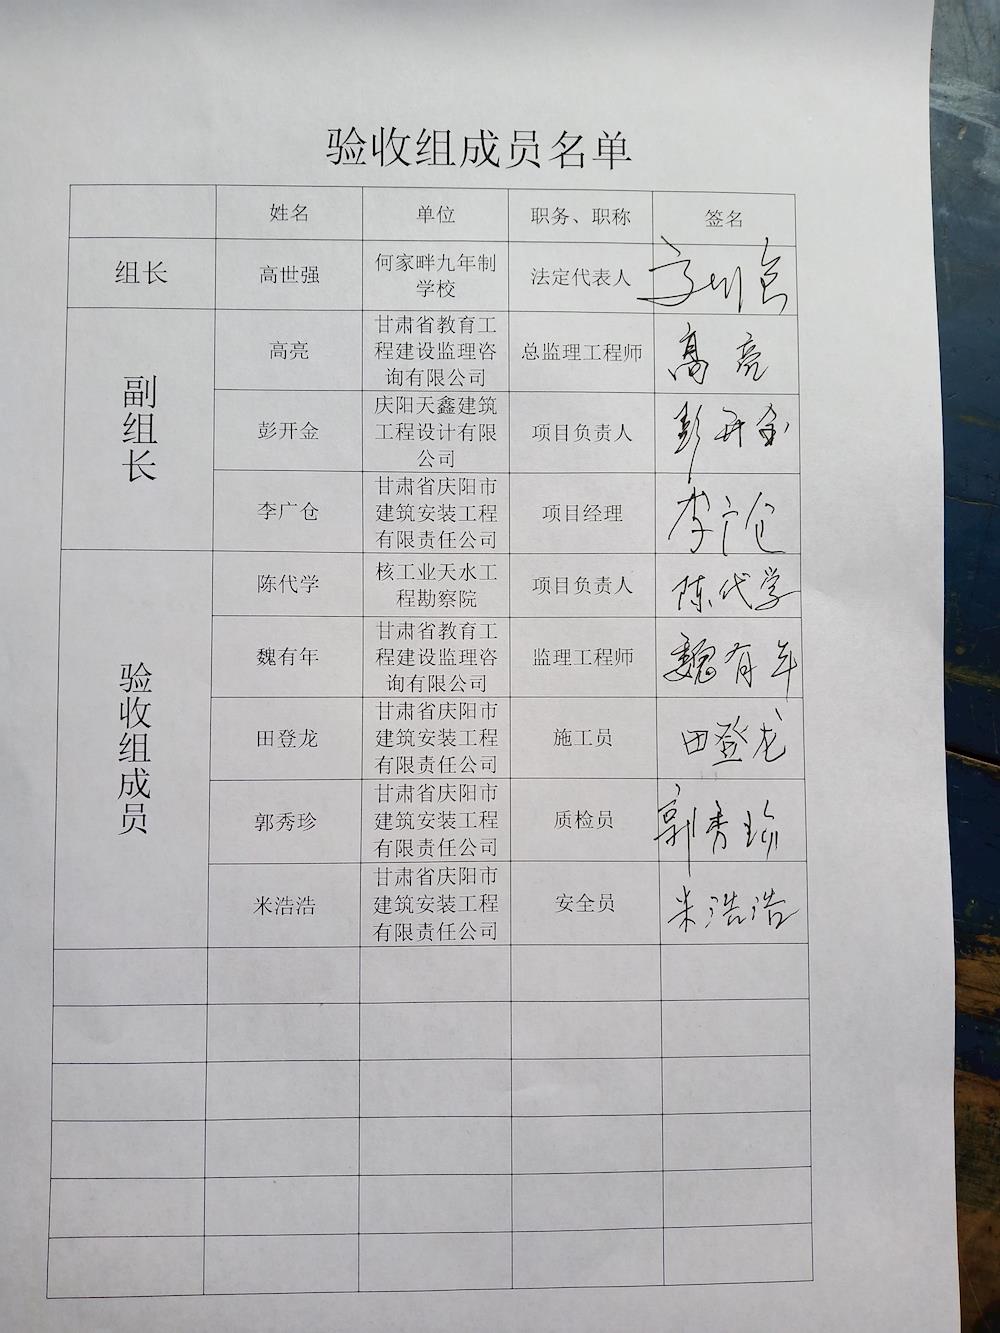 验收组成员名单
姓名 单位 职务、职称 签名
组长 高世强 何家畔九年制 法定代表人 高世强
学校
副组长
高亮 甘肃省教育工 总监理工程师 高亮
程建设监理咨
询有限公司
彭开金 庆阳天鑫建筑 项目负责人 彭开金
工程设计有限
公司
李广仓 甘肃省庆阳市 项目经理 李广仓
建筑安装工程
有限责任公司
验收组成员
陈代学 核工业天水工 项目负责人 陈代学
程勘察院
魏有年 甘肃省教育工 监理工程师 魏有年
程建设监理咨
询有限公司
田登龙 甘肃省庆阳市 施工员 田登龙
建筑安装工程
有限责任公司
郭秀珍 甘肃省庆阳市 质检员 郭秀珍
建筑安装工程
有限责任公司
米浩浩 甘肃省庆阳市 安全员 米浩浩
建筑安装工程
有限责任公司